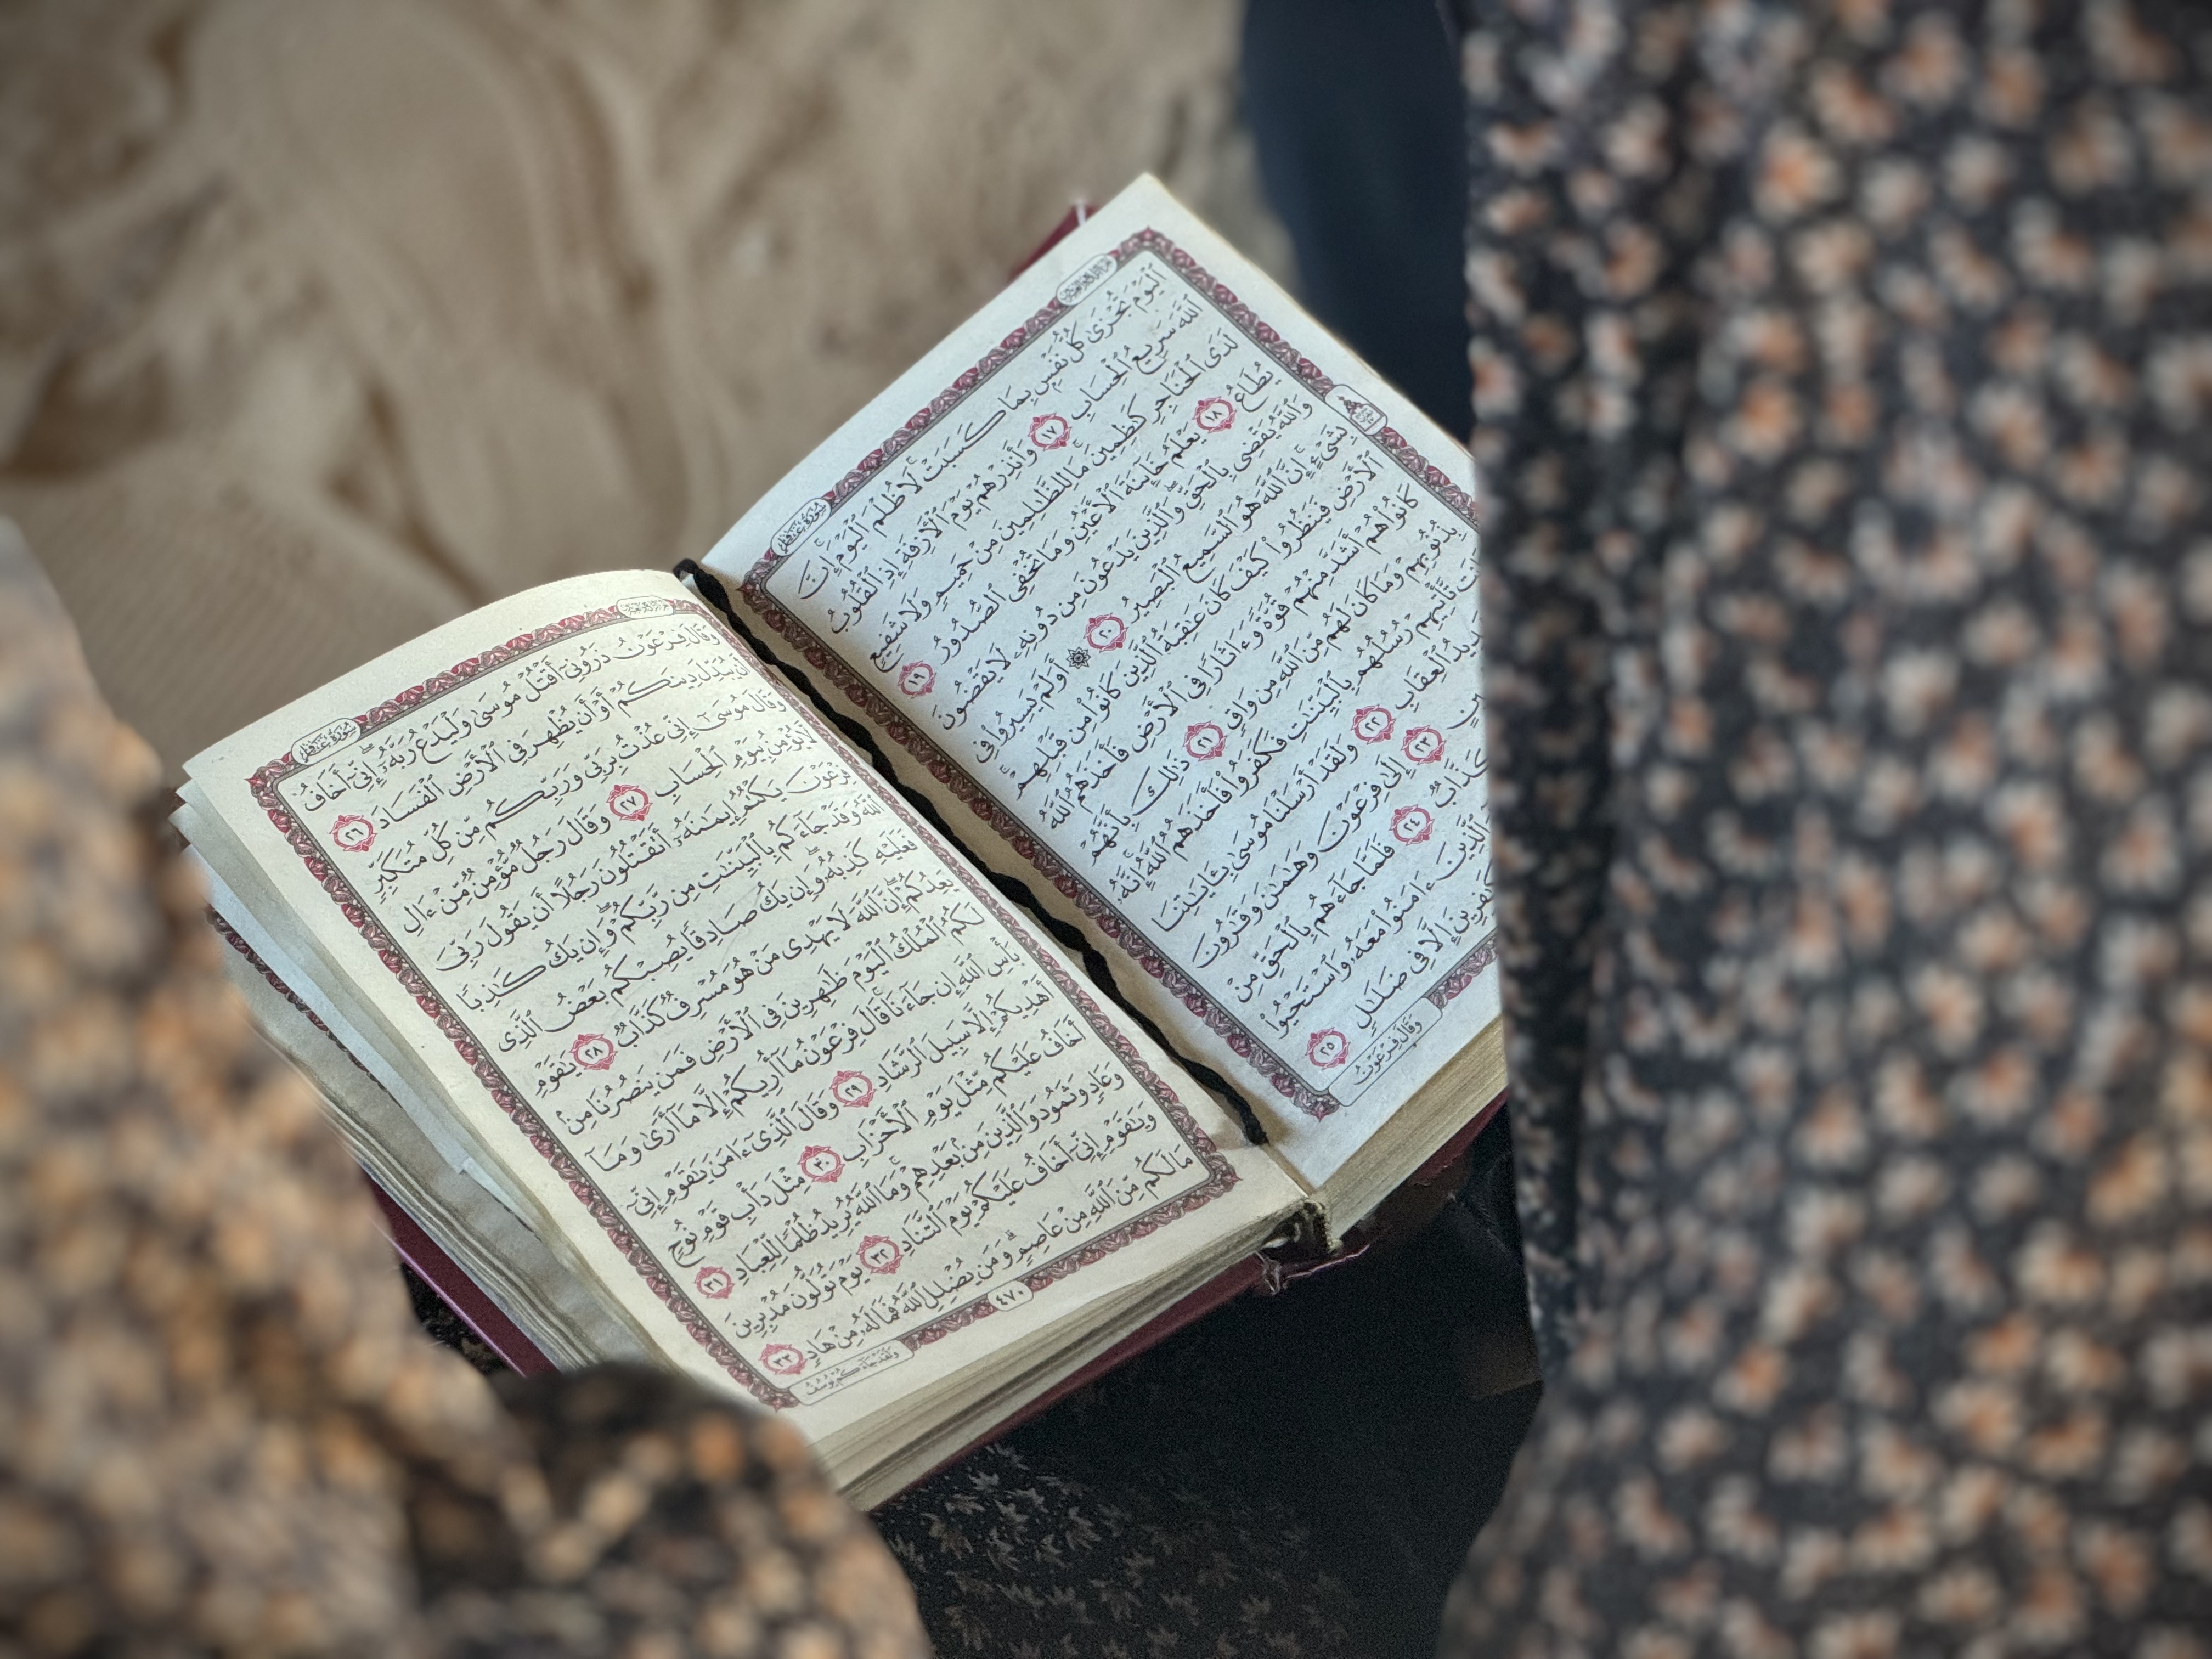 سُورَةُ غَافِرٍ
ٱلْيَوْمَ تُجْزَىٰ كُلُّ نَفْسٍۭ بِمَا كَسَبَتْ ۚ لَا ظُلْمَ ٱلْيَوْمَ ۚ إِنَّ
ٱللَّهَ سَرِيعُ ٱلْحِسَابِ ١٧ وَأَنذِرْهُمْ يَوْمَ ٱلْـَٔازِفَةِ إِذِ ٱلْقُلُوبُ
لَدَى ٱلْحَنَاجِرِ كَـٰظِمِينَ ۚ مَا لِلظَّـٰلِمِينَ مِنْ حَمِيمٍ وَلَا شَفِيعٍ
يُطَاعُ ١٨ يَعْلَمُ خَآئِنَةَ ٱلْأَعْيُنِ وَمَا تُخْفِى ٱلصُّدُورُ ١٩
وَٱللَّهُ يَقْضِى بِٱلْحَقِّ ۖ وَٱلَّذِينَ يَدْعُونَ مِن دُونِهِۦ لَا يَقْضُونَ
بِشَىْءٍ ۗ إِنَّ ٱللَّهَ هُوَ ٱلسَّمِيعُ ٱلْبَصِيرُ ٢٠ ۞ أَوَلَمْ يَسِيرُوا۟ فِى
ٱلْأَرْضِ فَيَنظُرُوا۟ كَيْفَ كَانَ عَـٰقِبَةُ ٱلَّذِينَ كَانُوا۟ مِن قَبْلِهِمْ ۚ
كَانُوا۟ هُمْ أَشَدَّ مِنْهُمْ قُوَّةً وَءَاثَارًا فِى ٱلْأَرْضِ فَأَخَذَهُمُ ٱللَّهُ
بِذُنُوبِهِمْ وَمَا كَانَ لَهُم مِّنَ ٱللَّهِ مِن وَاقٍ ٢١ ذَٰلِكَ بِأَنَّهُمْ
تَّأْتِيهِمْ رُسُلُهُم بِٱلْبَيِّنَـٰتِ فَكَفَرُوا۟ فَأَخَذَهُمُ ٱللَّهُ ۚ إِنَّهُۥ
ٱلْعِقَابِ ٢٢ وَلَقَدْ أَرْسَلْنَا مُوسَىٰ بِـَٔايَـٰتِنَا
٢٣ إِلَىٰ فِرْعَوْنَ وَهَـٰمَـٰنَ وَقَـٰرُونَ
كَذَّابٌ ٢٤ فَلَمَّا جَآءَهُم بِٱلْحَقِّ مِنْ
ٱلَّذِينَ ءَامَنُوا۟ مَعَهُۥ وَٱسْتَحْيُوا۟
إِلَّا فِى ضَلَـٰلٍ ٢٥
وَقَالَ فِرْعَوْنُ
سُورَةُ غَافِرٍ
وَقَالَ فِرْعَوْنُ ذَرُونِىٓ أَقْتُلْ مُوسَىٰ وَلْيَدْعُ رَبَّهُۥٓ ۖ إِنِّىٓ أَخَافُ
أَن يُبَدِّلَ دِينَكُمْ أَوْ أَن يُظْهِرَ فِى ٱلْأَرْضِ ٱلْفَسَادَ ٢٦
وَقَالَ مُوسَىٰٓ إِنِّى عُذْتُ بِرَبِّى وَرَبِّكُم مِّن كُلِّ مُتَكَبِّرٍ
لَّا يُؤْمِنُ بِيَوْمِ ٱلْحِسَابِ ٢٧ وَقَالَ رَجُلٌ مُّؤْمِنٌ مِّنْ ءَالِ
فِرْعَوْنَ يَكْتُمُ إِيمَـٰنَهُۥٓ أَتَقْتُلُونَ رَجُلًا أَن يَقُولَ رَبِّىَ
ٱللَّهُ وَقَدْ جَآءَكُم بِٱلْبَيِّنَـٰتِ مِن رَّبِّكُمْ ۖ وَإِن يَكُ كَـٰذِبًا
فَعَلَيْهِ كَذِبُهُۥ ۖ وَإِن يَكُ صَادِقًا يُصِبْكُم بَعْضُ ٱلَّذِى
يَعِدُكُمْ ۖ إِنَّ ٱللَّهَ لَا يَهْدِى مَنْ هُوَ مُسْرِفٌ كَذَّابٌ ٢٨ يَـٰقَوْمِ
لَكُمُ ٱلْمُلْكُ ٱلْيَوْمَ ظَـٰهِرِينَ فِى ٱلْأَرْضِ فَمَن يَنصُرُنَا مِنۢ
بَأْسِ ٱللَّهِ إِن جَآءَنَا ۚ قَالَ فِرْعَوْنُ مَآ أُرِيكُمْ إِلَّا مَآ أَرَىٰ وَمَآ
أَهْدِيكُمْ إِلَّا سَبِيلَ ٱلرَّشَادِ ٢٩ وَقَالَ ٱلَّذِىٓ ءَامَنَ يَـٰقَوْمِ إِنِّىٓ
أَخَافُ عَلَيْكُم مِّثْلَ يَوْمِ ٱلْأَحْزَابِ ٣٠ مِثْلَ دَأْبِ قَوْمِ نُوحٍ
وَعَادٍ وَثَمُودَ وَٱلَّذِينَ مِنۢ بَعْدِهِمْ ۚ وَمَا ٱللَّهُ يُرِيدُ ظُلْمًا لِّلْعِبَادِ ٣١
وَيَـٰقَوْمِ إِنِّىٓ أَخَافُ عَلَيْكُمْ يَوْمَ ٱلتَّنَادِ ٣٢ يَوْمَ تُوَلُّونَ مُدْبِرِينَ
مَا لَكُم مِّنَ ٱللَّهِ مِنْ عَاصِمٍ ۗ وَمَن يُضْلِلِ ٱللَّهُ فَمَا لَهُۥ مِنْ هَادٍ ٣٣
٤٧٠
وَلَقَدْ جَآءَكُمْ يُوسُفُ